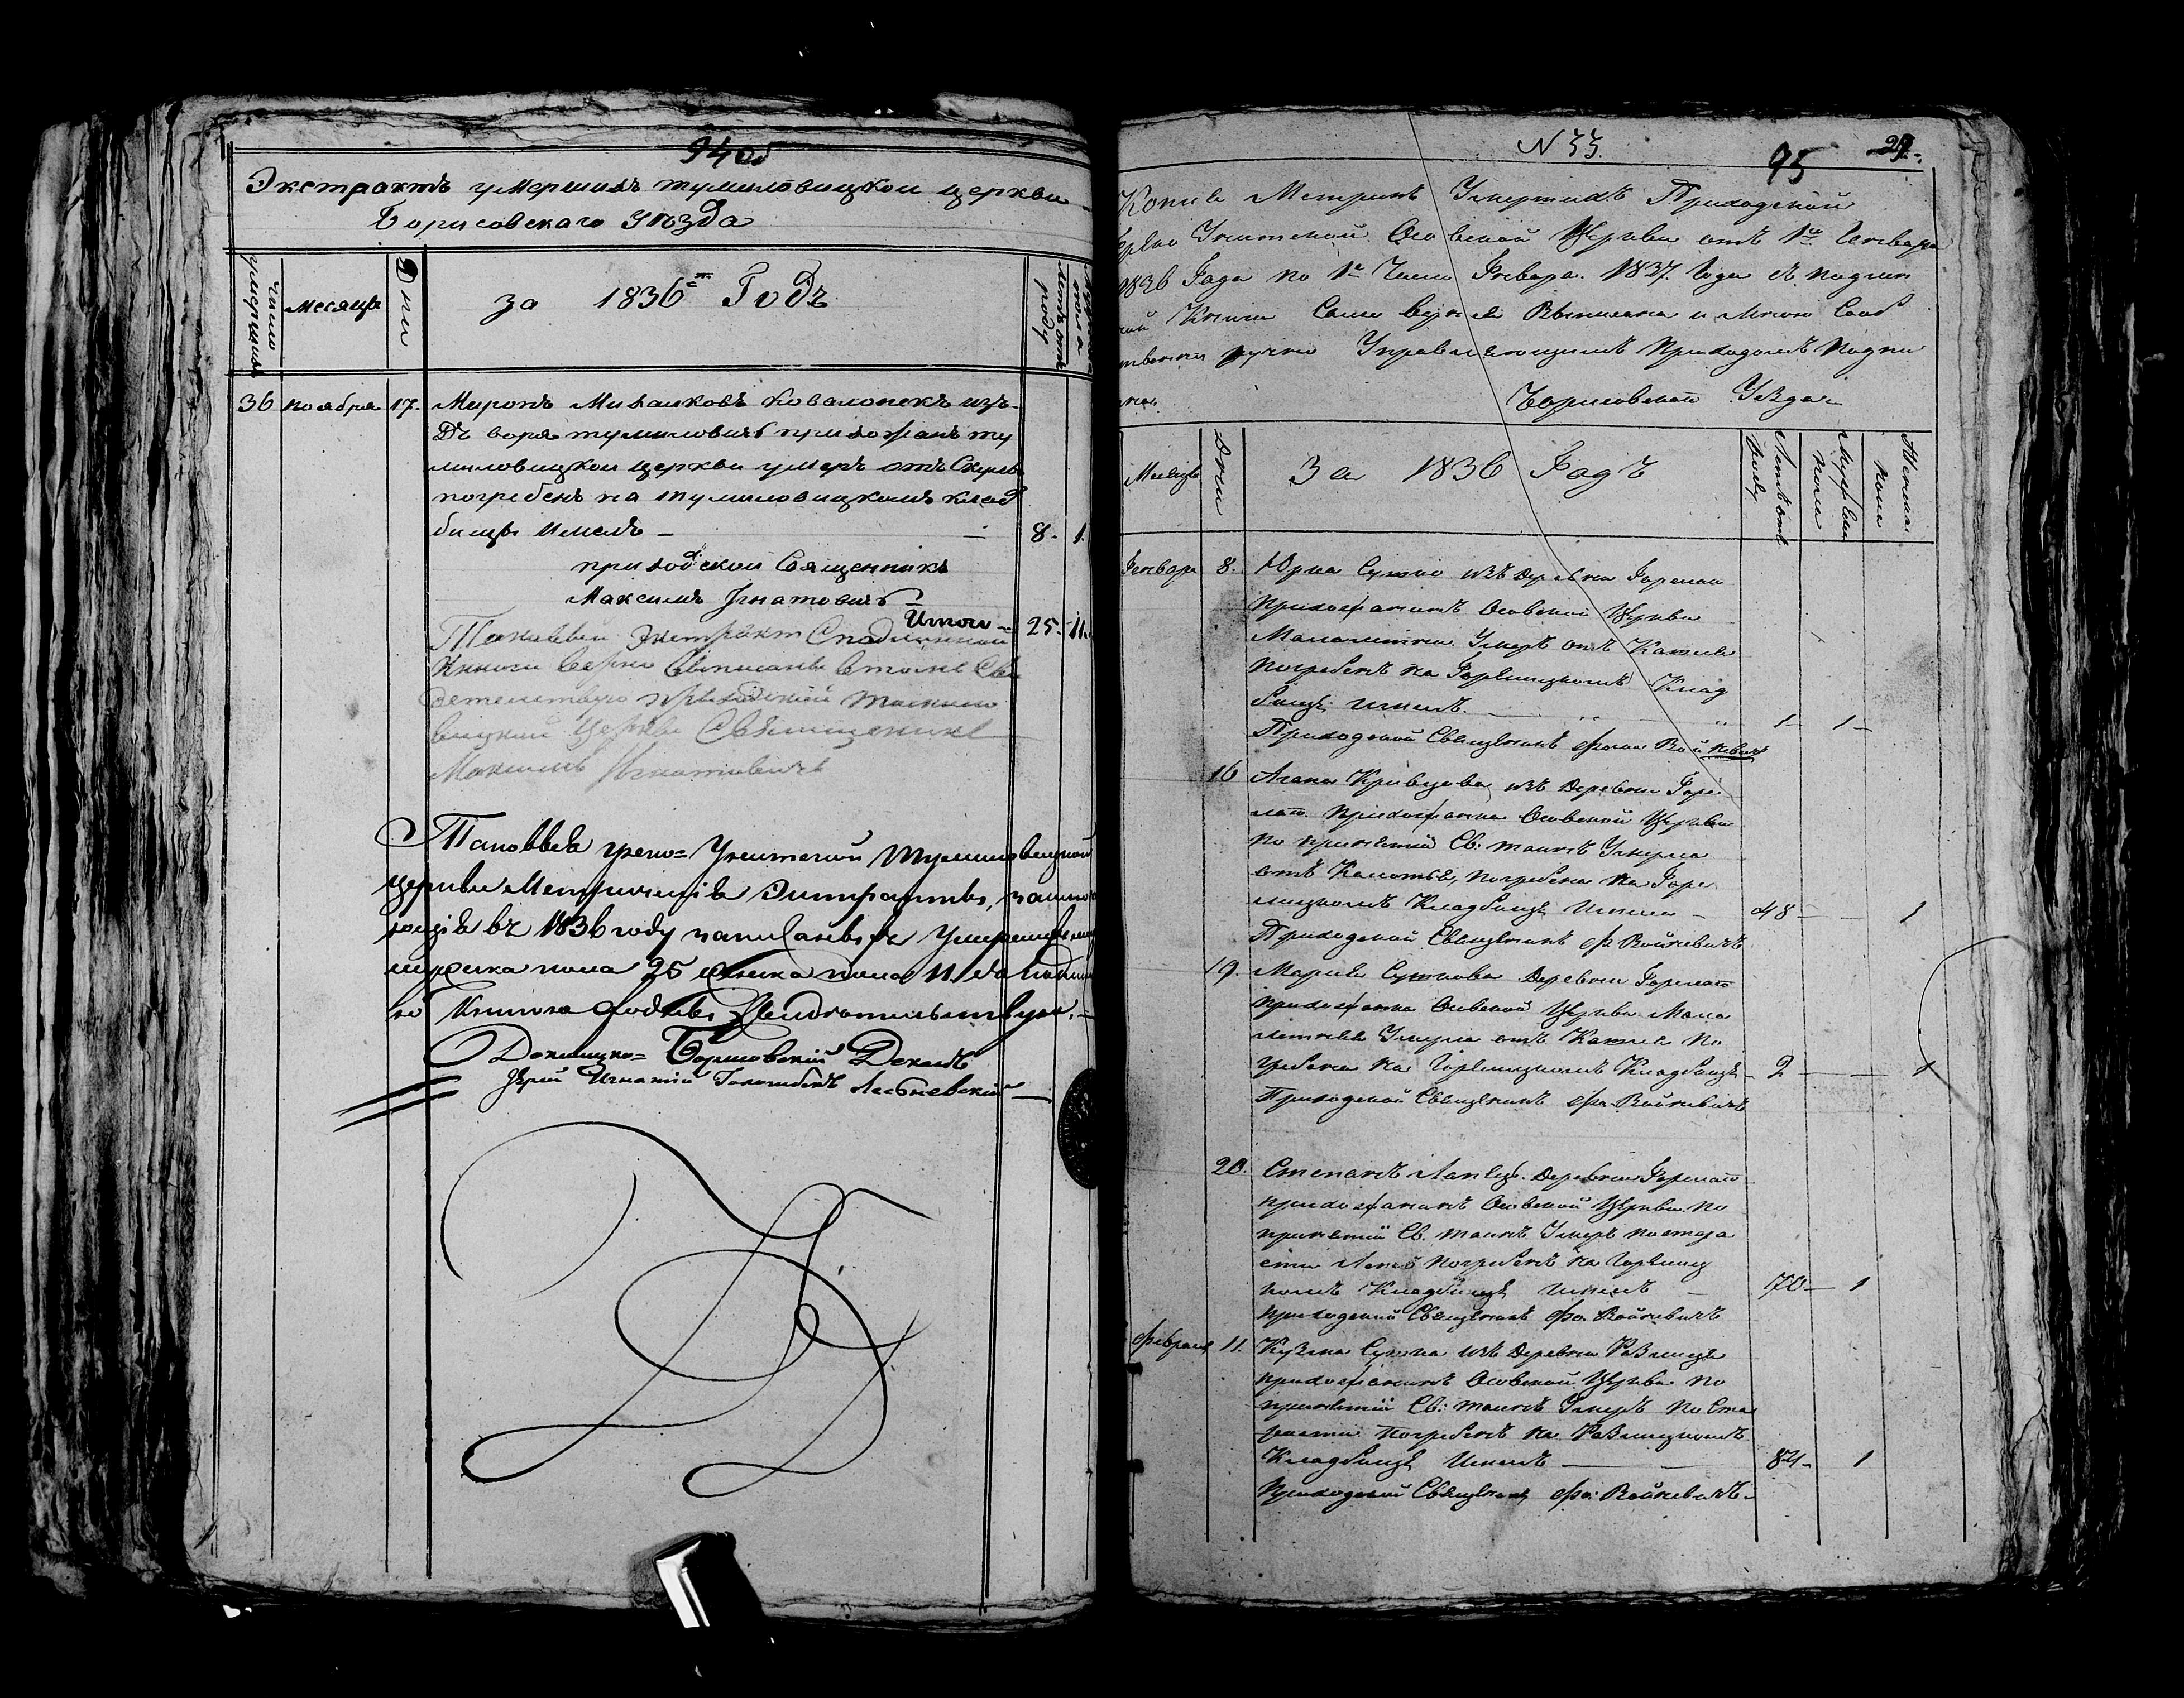 94 об
Экстрактъ умершихъ тумиловицкой церкви
Борисовскаго Уѣзда
число умершихъ
месяцъ
Дни
за 1836й Годъ
Летъ отъ роду
36 ноября 17. Миронъ Михалковъ Ковалонекъ изъ
Дворя тумиловичъ прихожанъ ту
миловицкой церкви умеръ отъ
погребенъ на тумиловицкомъ клад
бищѣ имелъ — 8. 1.
приходской Священникъ
Максимъ Игнатовичъ
Итого — 25. 11.
Таковый экстрактъ С подлинной
Книги верно выписанъ в томъ Сви
детелствую приходской тумило
вицкой церкви Священникъ
Максимъ Игнатовичъ
Таковые греко=Унитской Тумиловицкой
церкви Метрическіе Экстракты,
въ 1836 году записаны Умершихъ
мужска пола 25 женска пола 11
Книгою Свидетельствую.—
Докшицко=Борисовскій Деканъ
Іерей Игнатій Голембовскій
N 33.
95 29.
Копіе Метрикъ Умершихъ Приходской
Греко Унитской Осовской Церкви отъ 1го Генваря
1836 Года по 1е Число Генваря 1837 Года съ подлин
ной Книги Слово Выписана и мною Собс
твенно ручно Управляющимъ Приходомъ подпи
сана.
Борисовскаго Уѣзда
Месяцъ
Дни
За 1836 Годъ
Летъ отъ роду
Мужеска пола
Женска пола
Генваря 8. Юрка Сушко изъ деревни Горелаго
прихожанинъ Осовской Церкви
Малолетны Умеръ отъ Кашля
погребенъ на Горелицкомъ Клад
бищѣ имелъ. — 1 — 1 —
Приходской Священникъ Фома Войневичъ
16 Агапа Кривцова изъ Деревни Горе
лаго прихожанка Осовской Церкви
по принятіи Св: таинъ Умерла
отъ Колотья, погребена на Горе
лицкомъ Кладбищѣ имела — 48 — 1
Приходской Священникъ Ф Войневичъ
19. Марія Сушкова Деревни Горелаго
прихожанка Осовской Церкви Мало
летняя Умерла отъ Кашля по
гребена на Горелицкомъ Кладбищѣ — 2 — 1
Приходской Священникъ Фо. Войневичъ
20. Степанъ Деревни Горелаго
прихожанинъ Осовской Церкви по
принятіи Св. таинъ Умеръ по старо
сти Летъ погребенъ на Горелиц
комъ Кладбищѣ имелъ — 70 — 1
приходской Священникъ Фо. Войневичъ
Февраля 11. Кузма Сушка изъ Деревни
прихожанинъ Осовской Церкви по
принятіи Св: таинъ Умеръ по Ста
рости погребенъ на
Кладбищѣ имелъ — 84 — 1
Приходской Священникъ Фо: Войневичъ